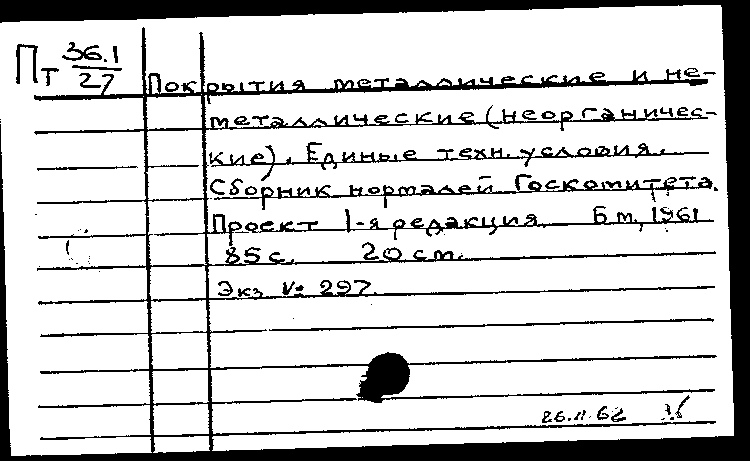 Пт 36.1/27
Покрытия металлические и не-
металлические (неорганичес-
кие). Единые техн. условия.
Сборник нормалей Госкомитета.
Проект 1-я редакция. Б м, 1961
85 с. 20 cm.
Экз № 297.
26.II.62